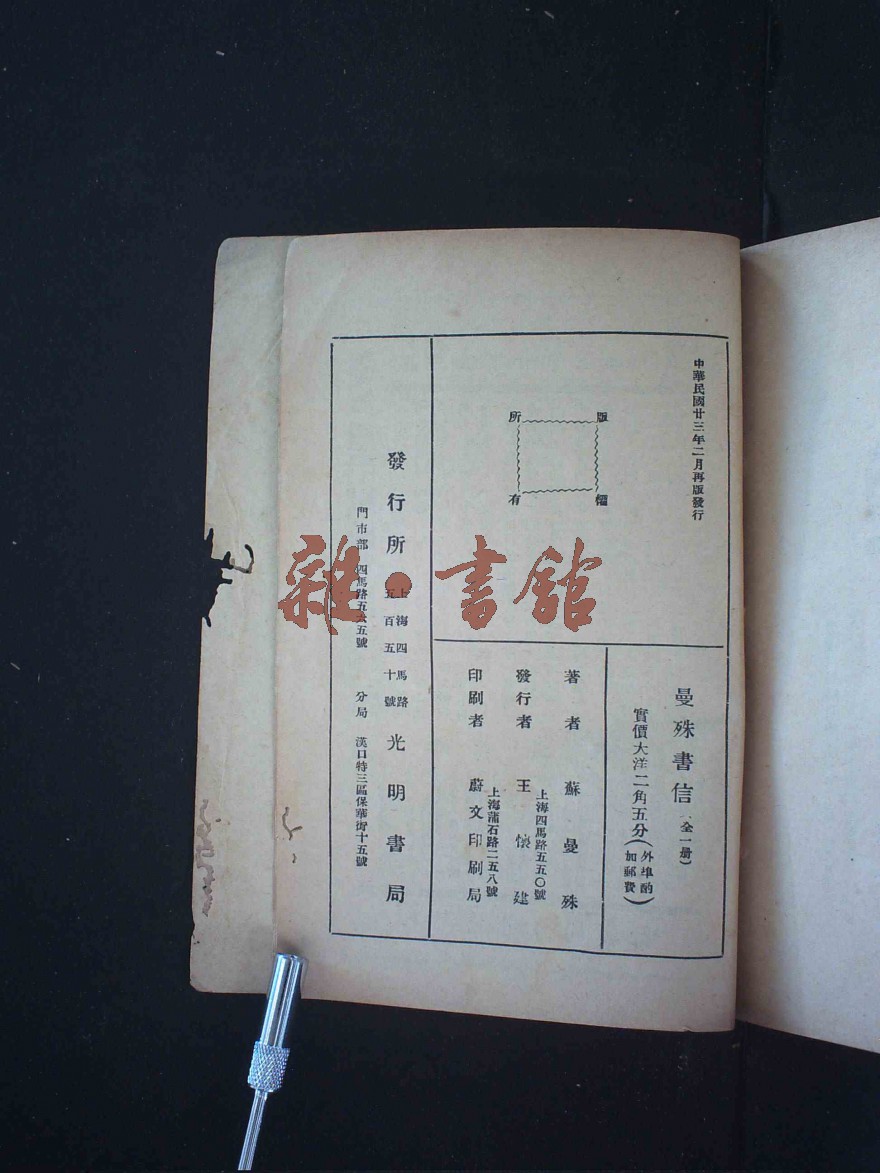 中華民國廿三年二月再版發行
版權
所有
曼殊書信(全一册)
實價大洋二角五分(外埠酌加郵費)
著者 蘇曼殊
上海四馬路五五〇號
發行者 王懷建
上海蒲石路二五八號
印刷者 蔚文印刷局
發行所 上海四馬路五百五十號 光明書局
門市部 四馬路五六五號 分局 漢口特三區保華街十五號
雜·書館